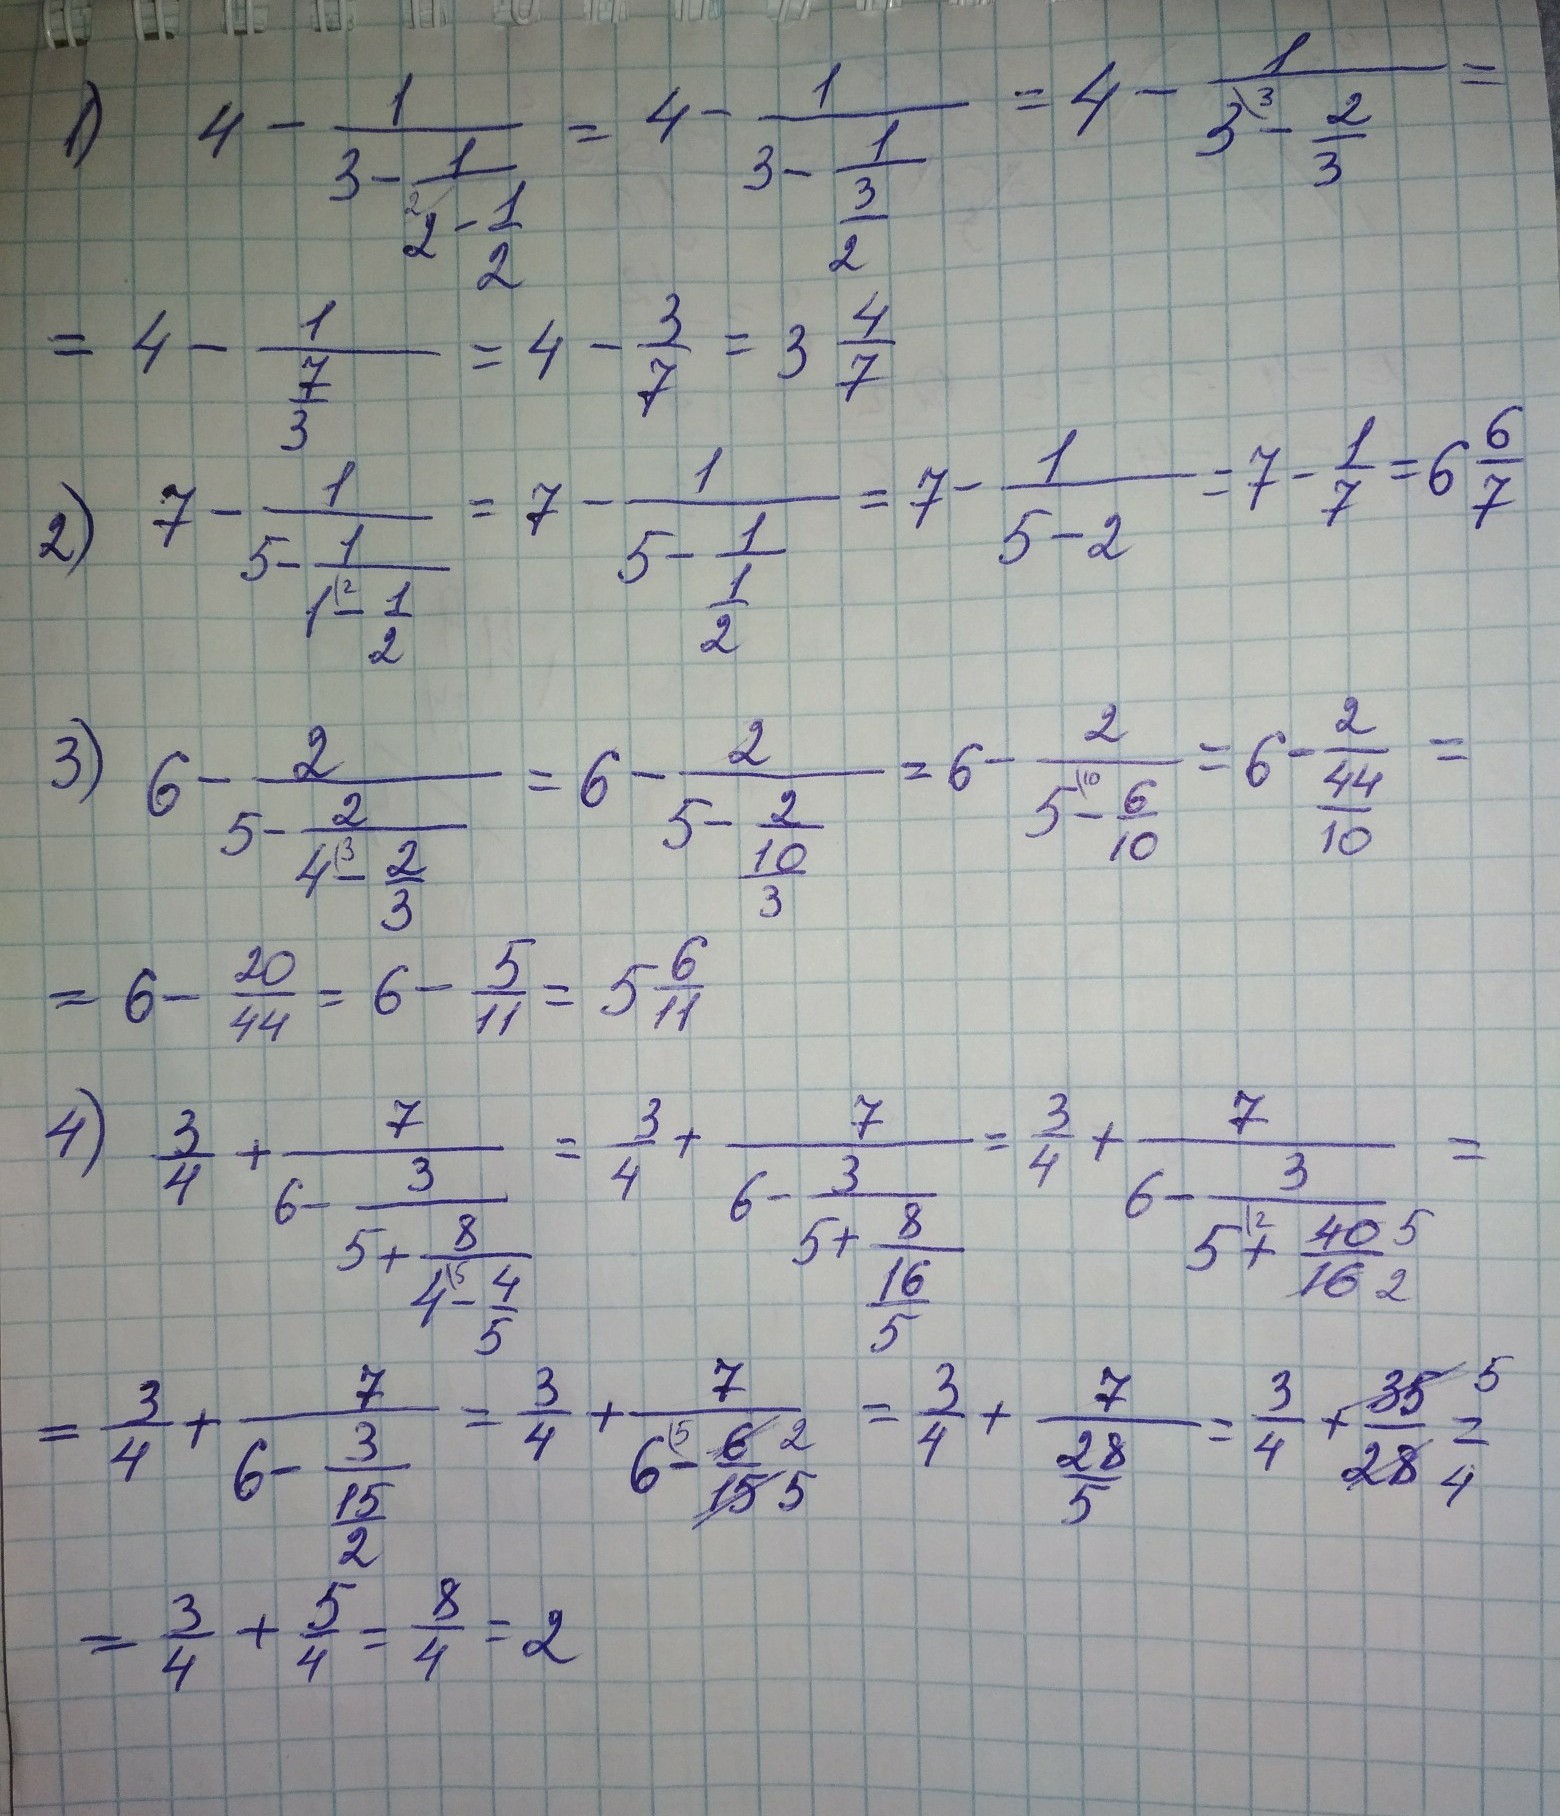 1) 4 - 1/(3 - 1/(2\2 - 1/2)) = 4 - 1/(3 - 1/(3/2)) = 4 - 1/(3\3 - 2/3) =
= 4 - 1/(7/3) = 4 - 3/7 = 3 4/7
2) 7 - 1/(5 - 1/(1\2 - 1/2)) = 7 - 1/(5 - 1/(1/2)) = 7 - 1/(5 - 2) = 7 - 1/7 = 6 6/7
3) 6 - 2/(5 - 2/(4\3 - 2/3)) = 6 - 2/(5 - 2/(10/3)) = 6 - 2/(5\10 - 6/10) = 6 - 2/(44/10) =
= 6 - 20/44 = 6 - 5/11 = 5 6/11
4) 3/4 + 7/(6 - 3/(5 + 8/(4\5 - 4/5))) = 3/4 + 7/(6 - 3/(5 + 8/(16/5))) = 3/4 + 7/(6 - 3/(5\2 + 40/16 5/2)) =
= 3/4 + 7/(6 - 3/(15/2)) = 3/4 + 7/(6\5 - 6/15 2/5) = 3/4 + 7/(28/5) = 3/4 + 35/28 5/4 =
= 3/4 + 5/4 = 8/4 = 2